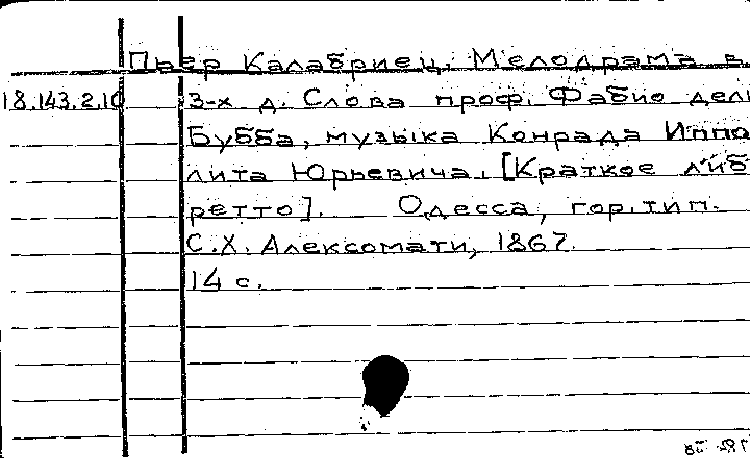 Пьер Калабриец. Мелодрама в
18.143.2.10 3-х д. Слова проф. Фабио дель
Бубба, музыка Конрада Иппо
лита Юрьевича. [Краткое либ
ретто]. Одесса, гор. тип.
С.Х. Алексомати, 1867.
14 с.